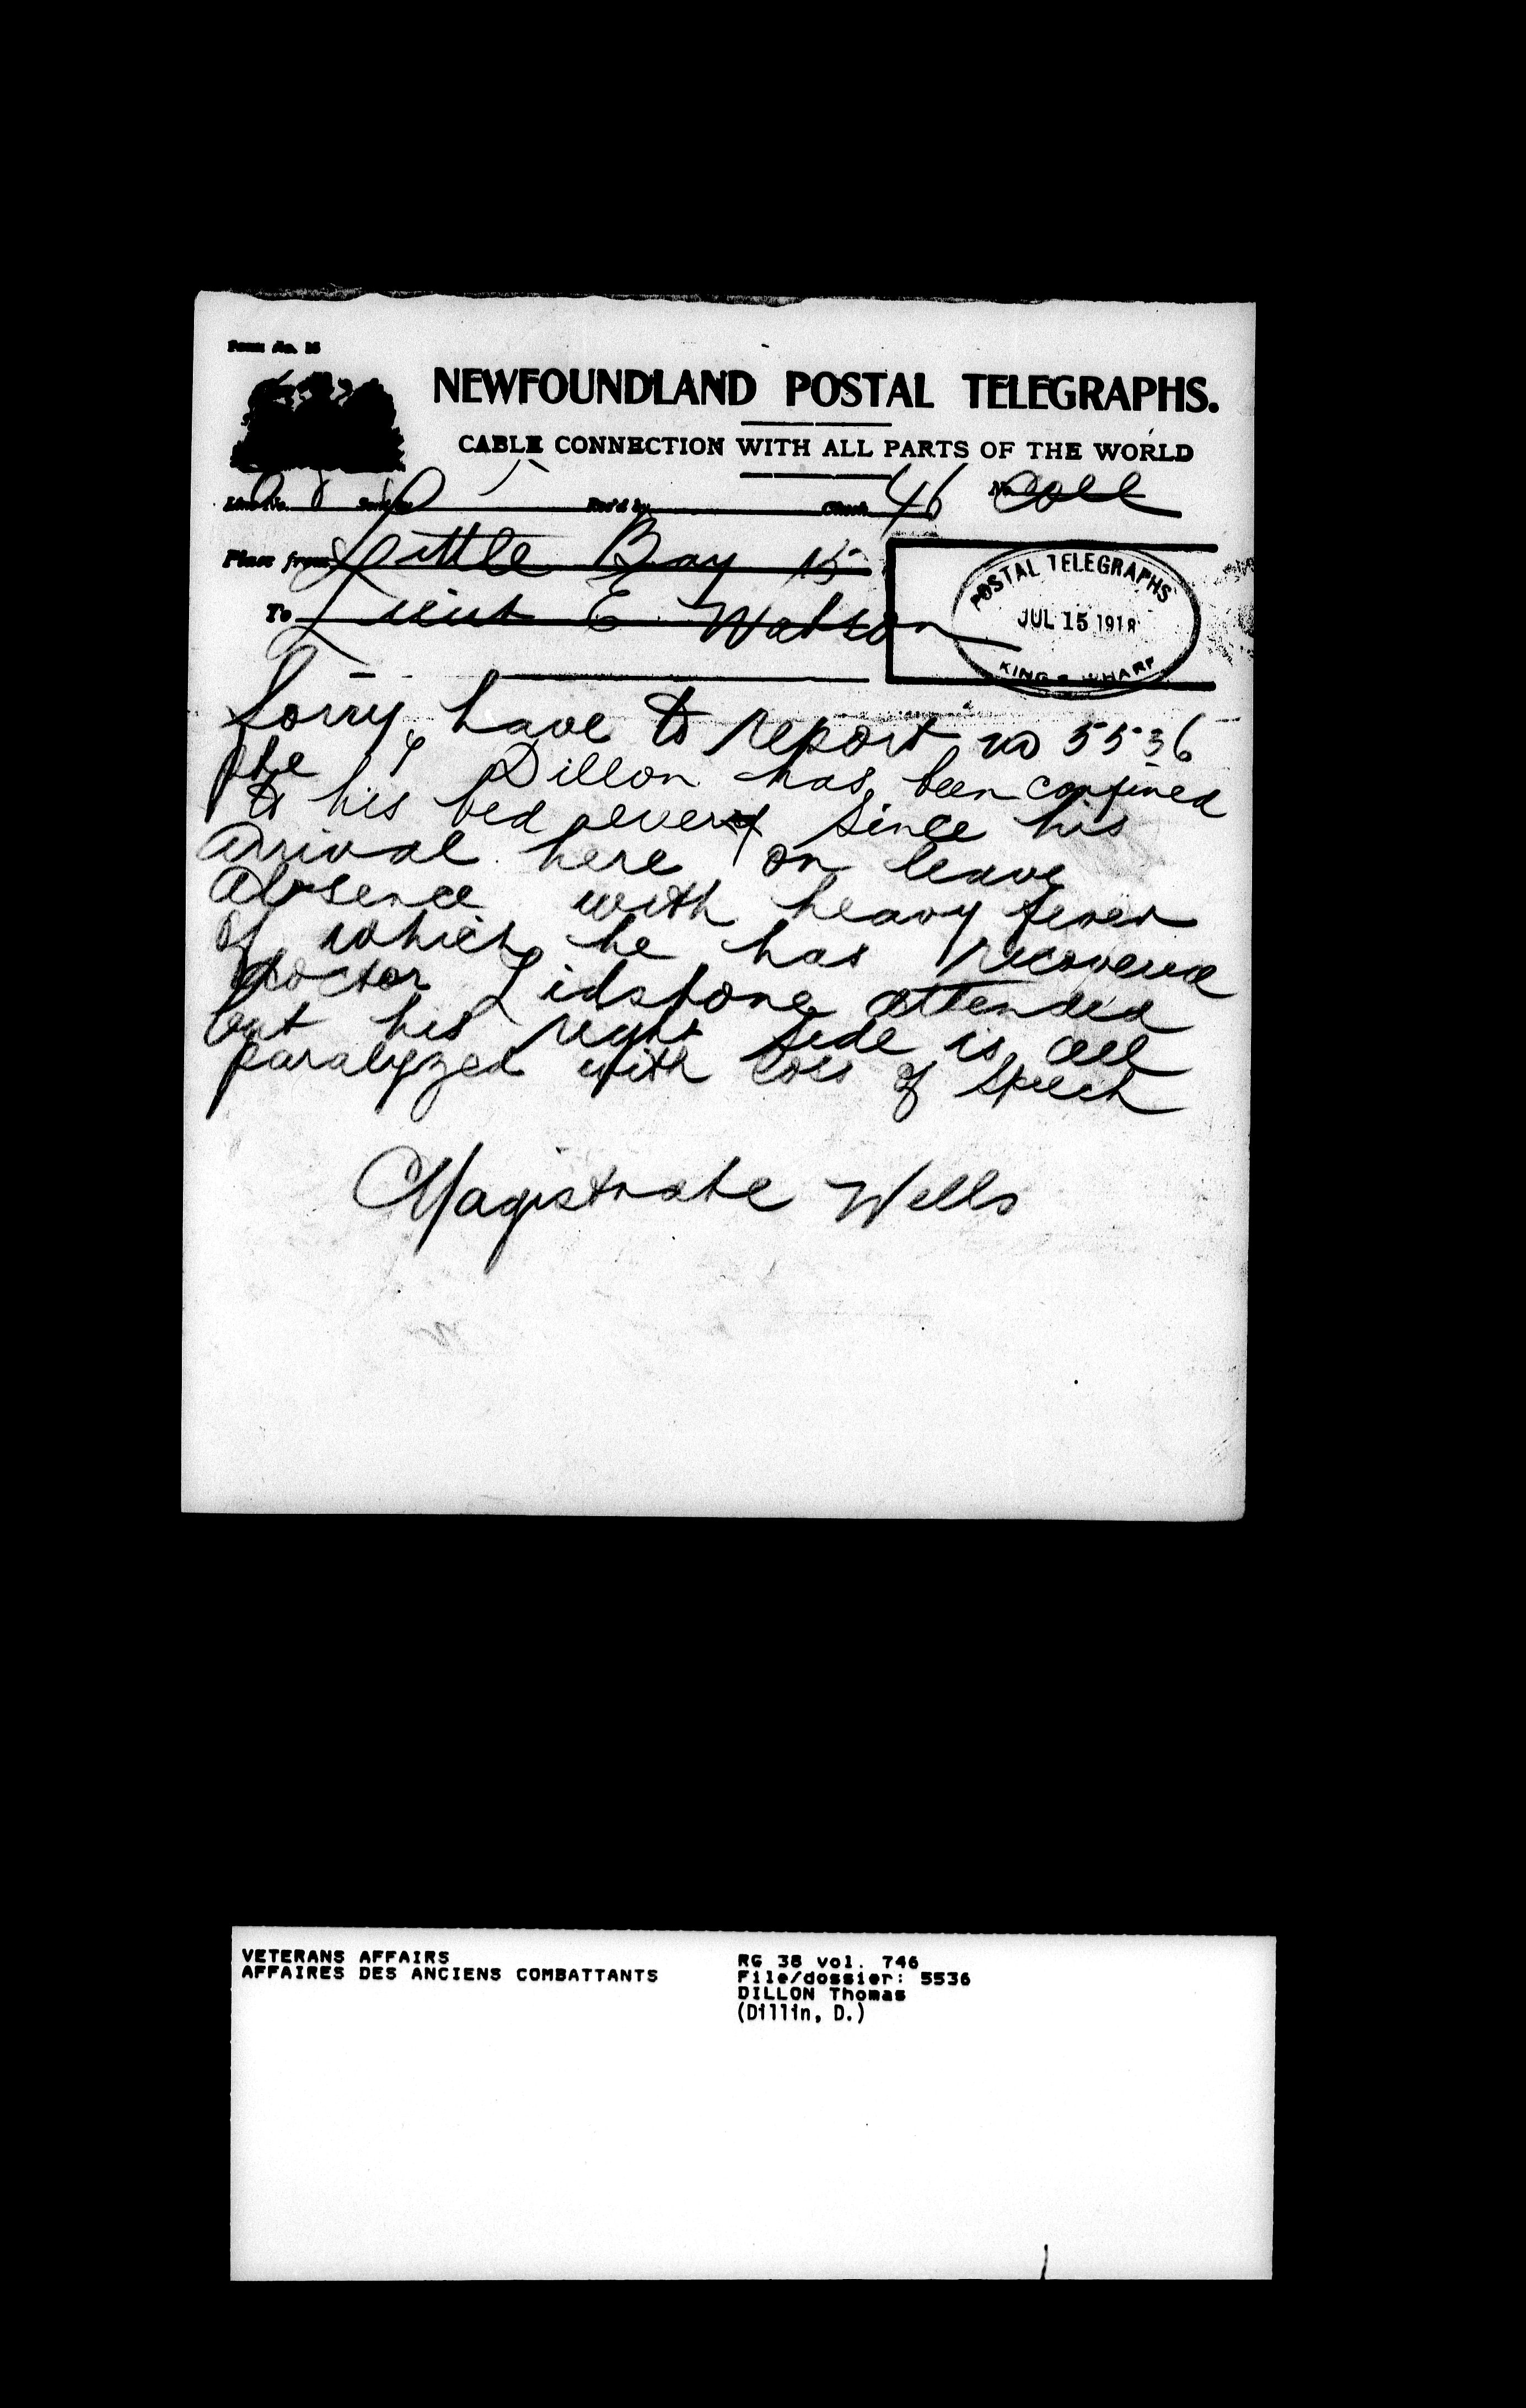 Form No. 16
NEWFOUNDLAND POSTAL TELEGRAPHS.
CABLE CONNECTION WITH ALL PARTS OF THE WORLD
Line No. Sent by Rec'd by Check 46 No. Coll
Place from Little Bay 15
To Lieut E Watson
POSTAL TELEGRAPHS
JUL 15 1918
KING'S WHARF
Sorry have to report no 5536
pte T Dillon has been confined
to his bed ever since his
arrival here on leave
absence with heavy fever
of which he has recovered
doctor Lidstone attended
but his right side is all
paralyzed with loss of speech
Magistrate Wells
VETERANS AFFAIRS
AFFAIRES DES ANCIENS COMBATTANTS
RG 38 vol. 746
File/dossier: 5536
DILLON Thomas
(Dillin, D.)